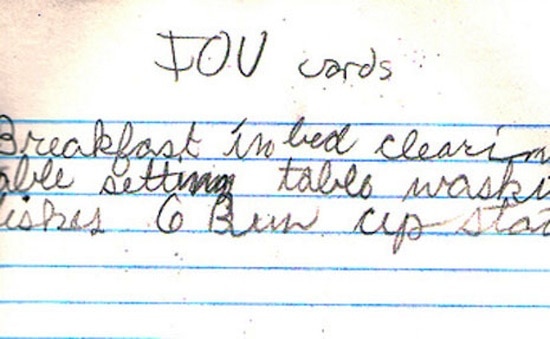 IOU cards
Breakfast in bed clearin
able setting table washi
ishes 6 Run up stai